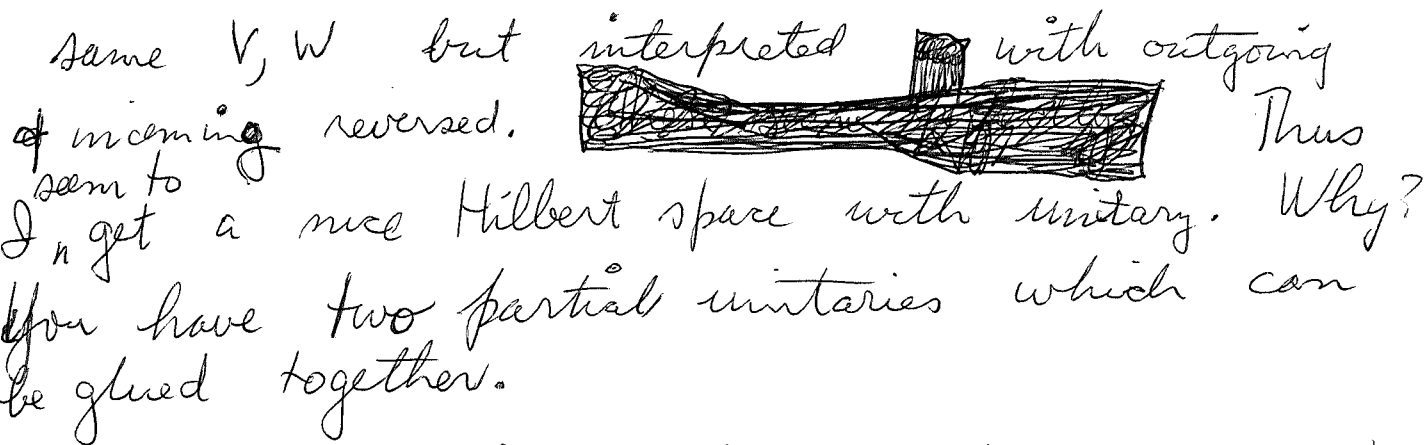 same V, W but interpreted with outgoing
& incoming reversed. Thus
I seem to get a nice Hilbert space with unitary. Why?
You have two partial unitaries which can
be glued together.